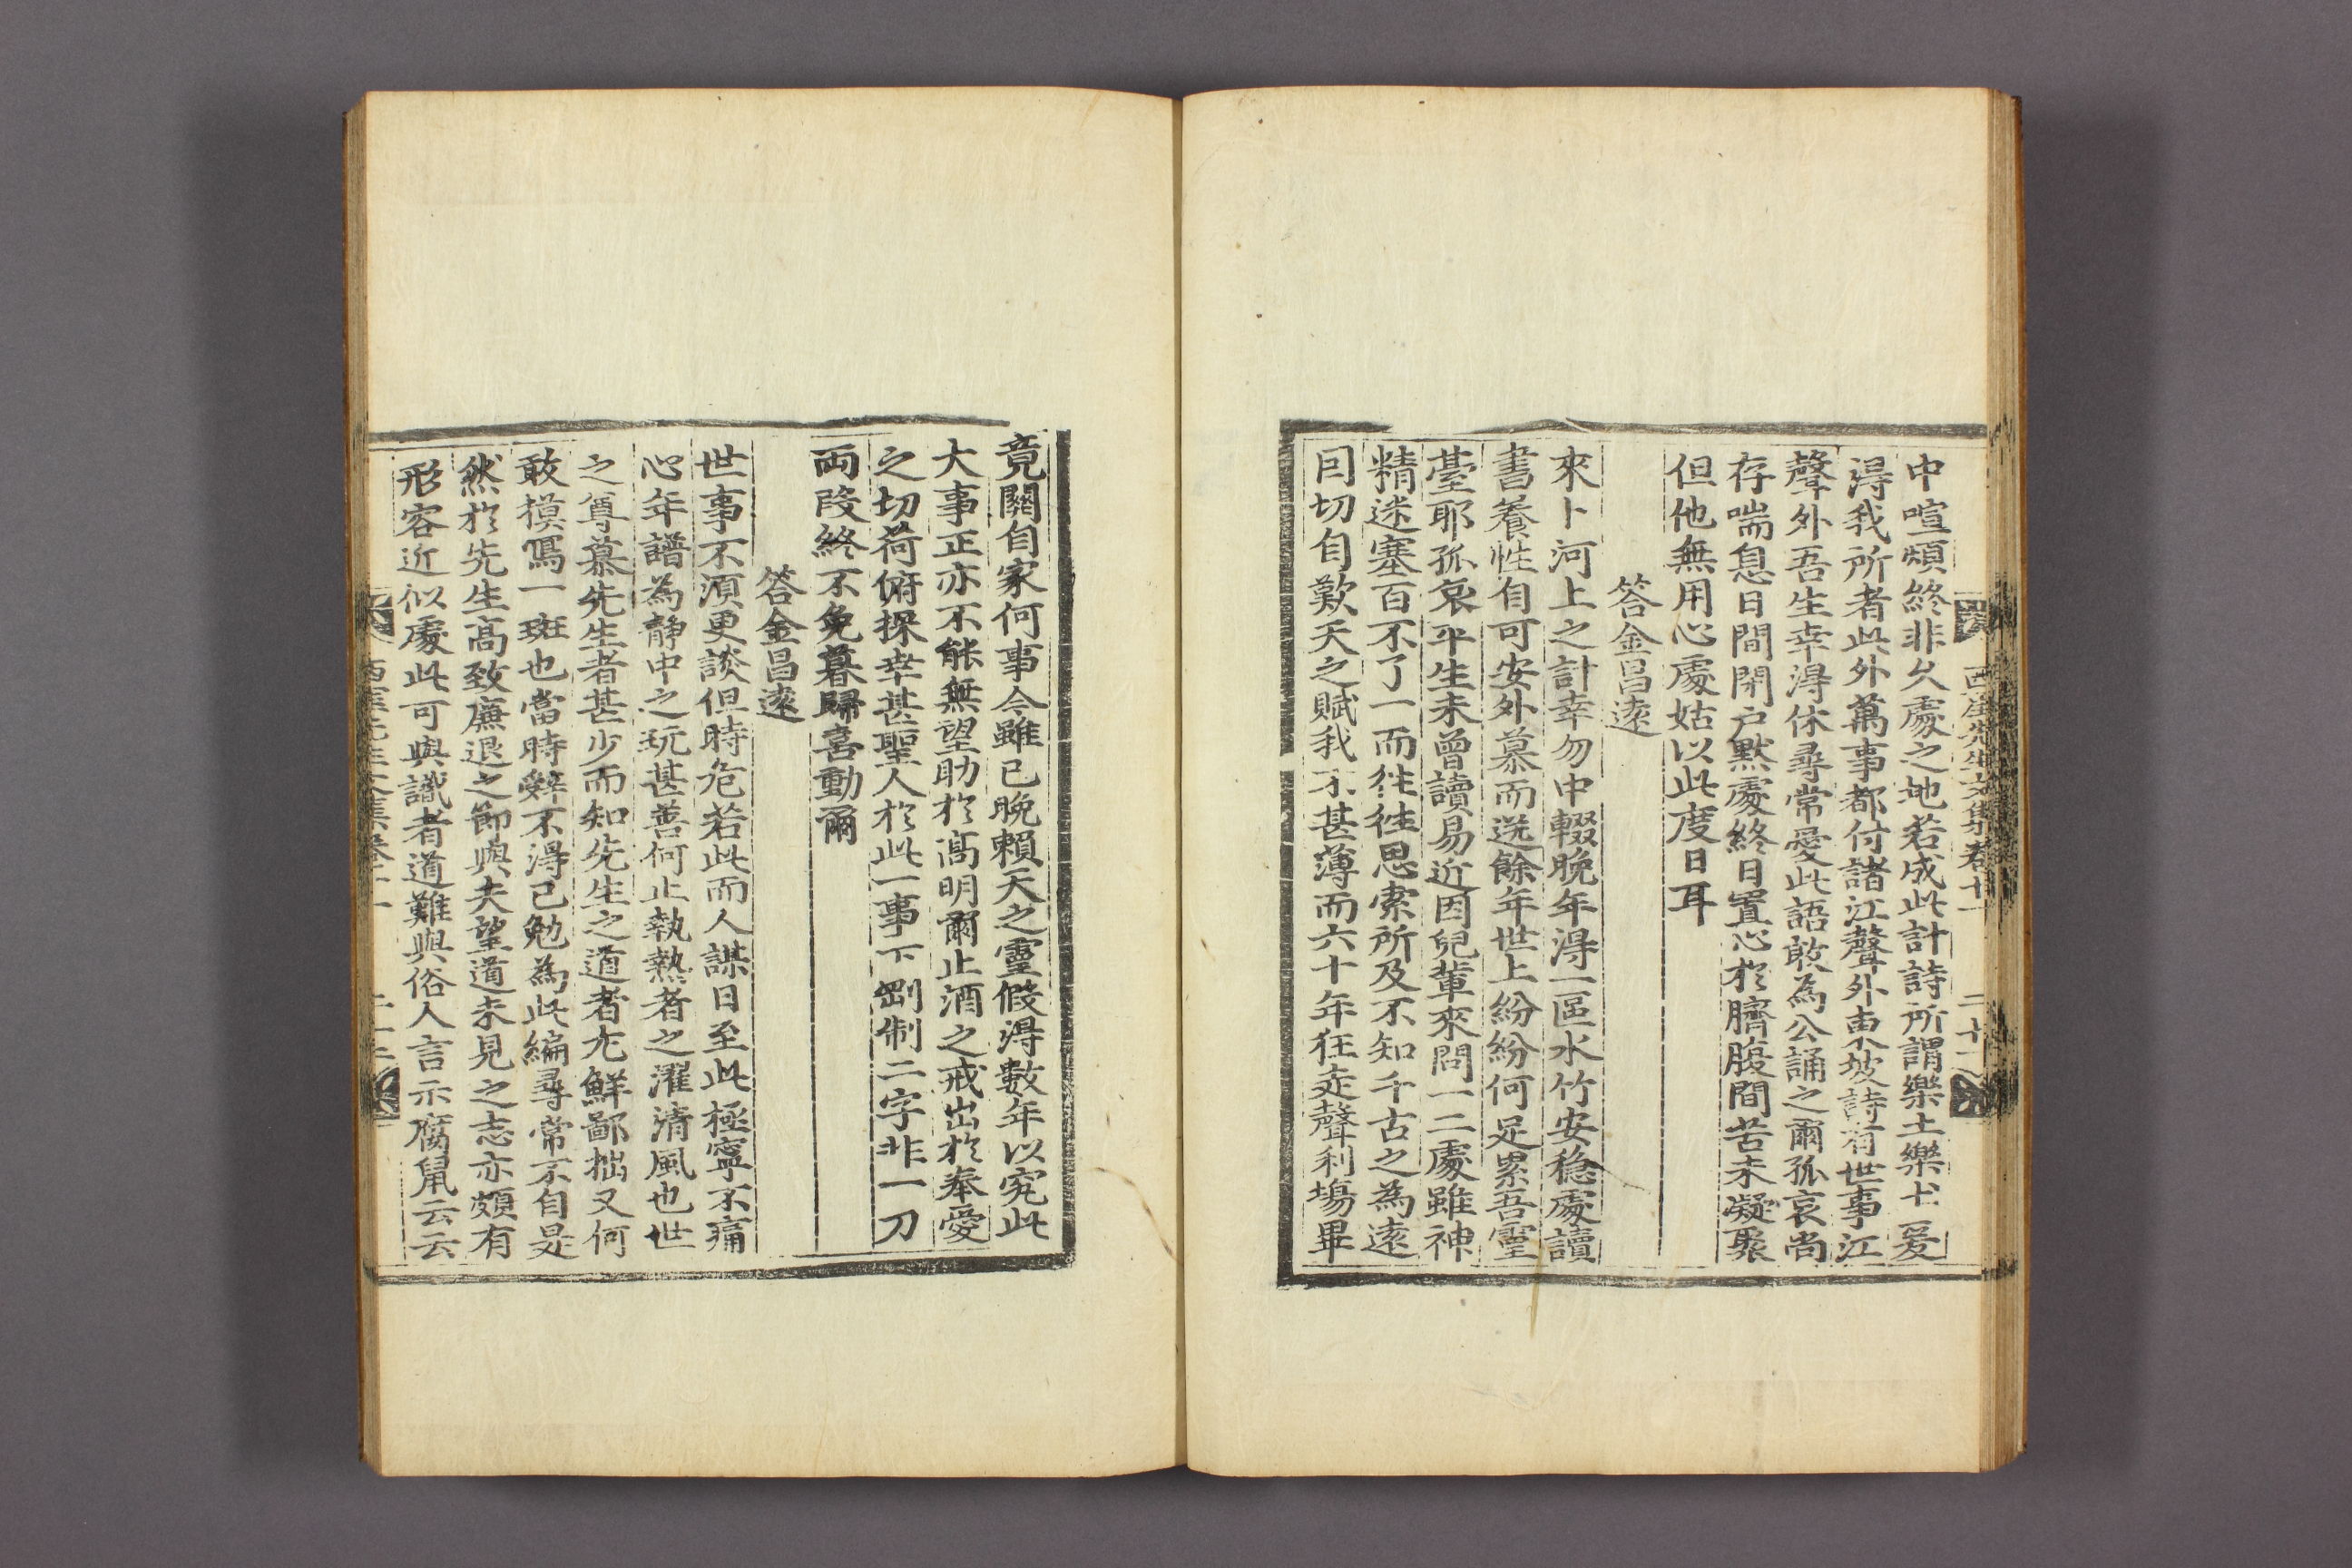 中喧煩終非久處之地若成此計詩所謂樂土樂土爰
得我所者此外萬事都付諸江聲外東坡詩有世事江
聲外吾生幸得休尋常愛此語敢為公誦之爾孤哀尚
存喘息日間閉戶默處終日置心於臍腹間苦未凝聚
但他無用心處姑以此度日耳
答金昌遠
來卜河上之計幸勿中輟晚年得一區水竹安穩處讀
書養性自可安外慕而送餘年世上紛紛何足累吾靈
臺耶孤哀平生未曾讀易近因兒輩來問一二處雖神
精迷塞百不了一而徃徃思索所及不知千古之為遠
囙切自歎天之賦我不甚薄而六十年狂走聲利塲畢
西厓先生文集卷十一
竟關自家何事今雖已晚賴天之靈假得數年以究此
大事正亦不能無望助於高明爾止酒之戒出於奉愛
之切荷俯採幸甚聖人於此一事下剛制二字非一刀
兩段終不免暮歸喜動爾
答金昌遠
世事不須更談但時危若此而人謀日至此極寧不痛
心年譜為靜中之玩甚善何止執熱者之濯淸風也世
之尊慕先生者甚少而知先生之道者尤鮮鄙拙又何
敢摸寫一斑也當時辭不得已勉為此編尋常不自是
然於先生高致廉退之節與夫望道未見之志亦頗有
形容近似處此可與識者道難與俗人言示腐鼠云云